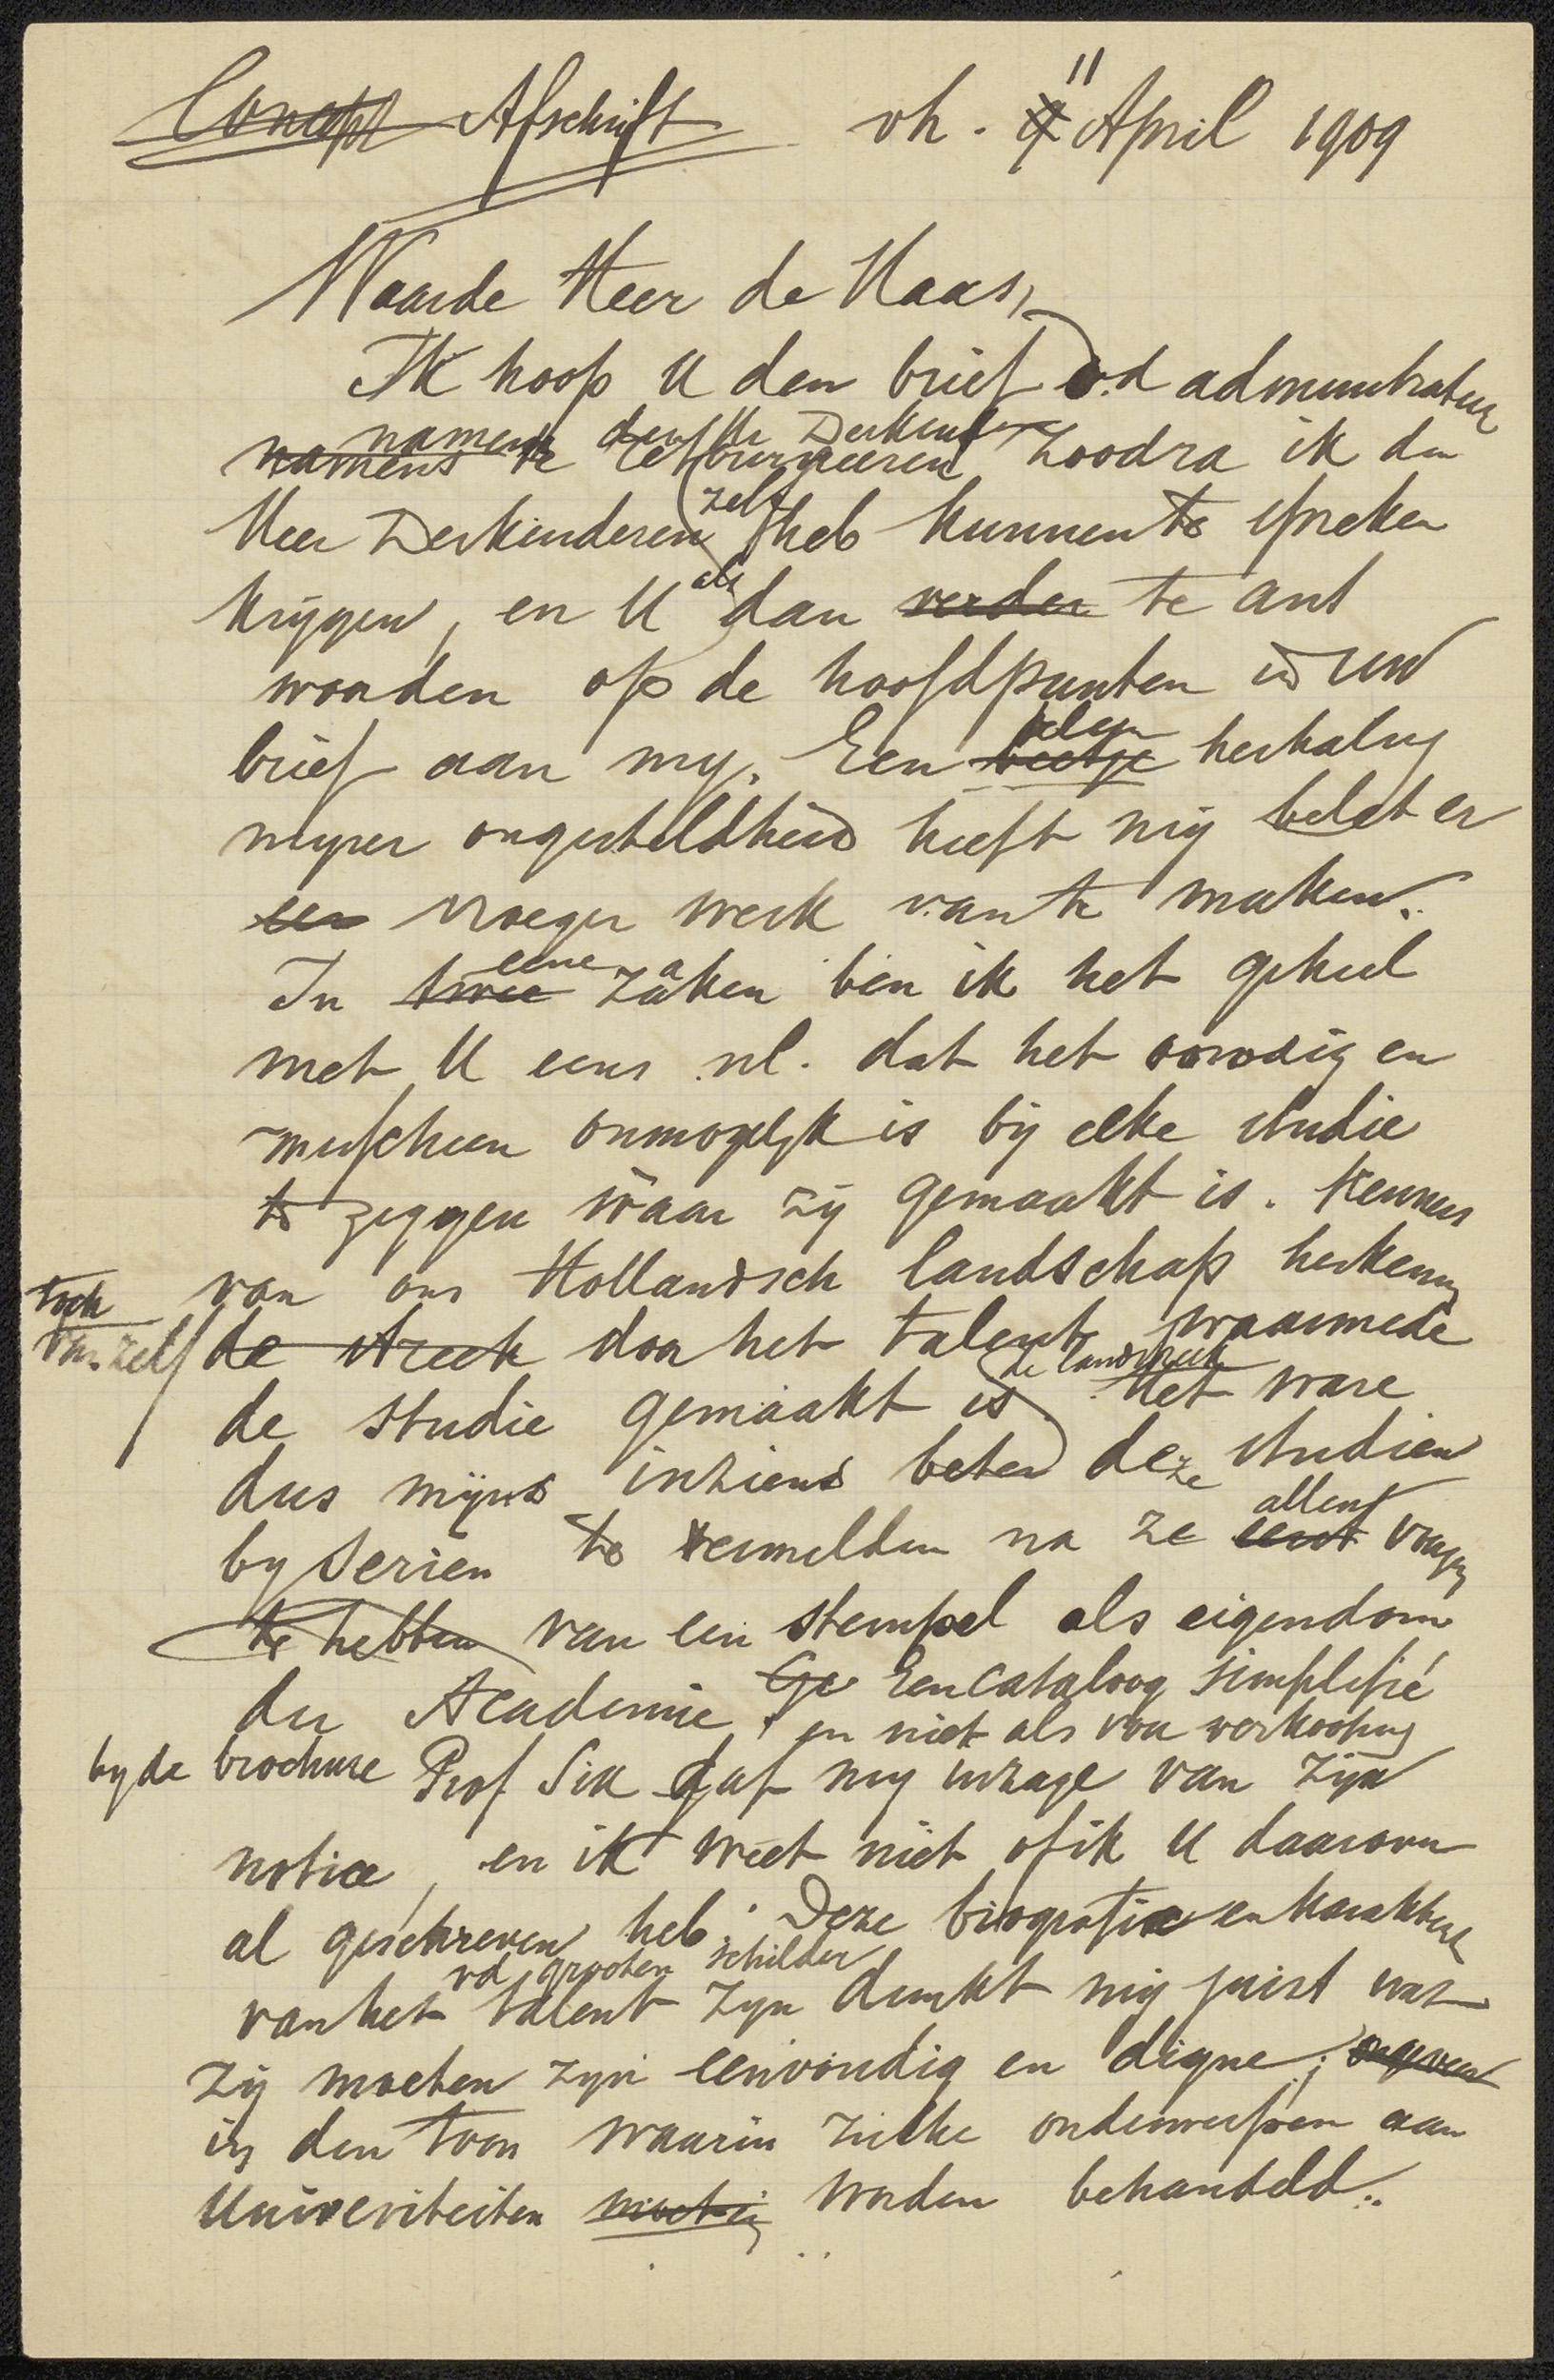 Concept Afschrift vh. 11 April 1909
Waarde Heer de Haas,
Ik hoop U den brief v.d administrateur
namens den Hr Derkinderen
namens te retourneeren zoodra ik den
zelf
Heer Derkinderen heb kunnen te spreken
als
krijgen, en U dan verder te ant
woorden op de hoofdpunten in uw
brief aan my. Een beetje herhaling
myner ongesteldheid heeft mij belet er
een vroeger werk van te maken.
eene a
In twee zaken ben ik het geheel
met U eens nl. dat het onnodig en
misschien onmogelyk is bij elke studie
te zeggen waar zij gemaakt is. Kenners
van ons Hollandsch landschap herkennen
toch
van zelf de streek door het talent, waarmede
de landstreek
de studie gemaakt is. Het ware
dus mijns inziens beter deze studien
allen
by serien te vermelden na ze eerst voorzien
te hebben van een stempel als eigendom
der Academie. Ge Een cataloog simplifié
en niet als voor verkooping
by de brochure Prof Six gaf my inzage van zijn
notice, en ik weet niet of ik U daarover
al geschreven heb. Deze biografie en karakter
vd grooten schilder
van het talent zyn dunkt mij juist wat
zij moeten zyn eenvoudig en digne;
in den toon waarin zulke onderwerpen aan
Universiteiten worden behandeld..